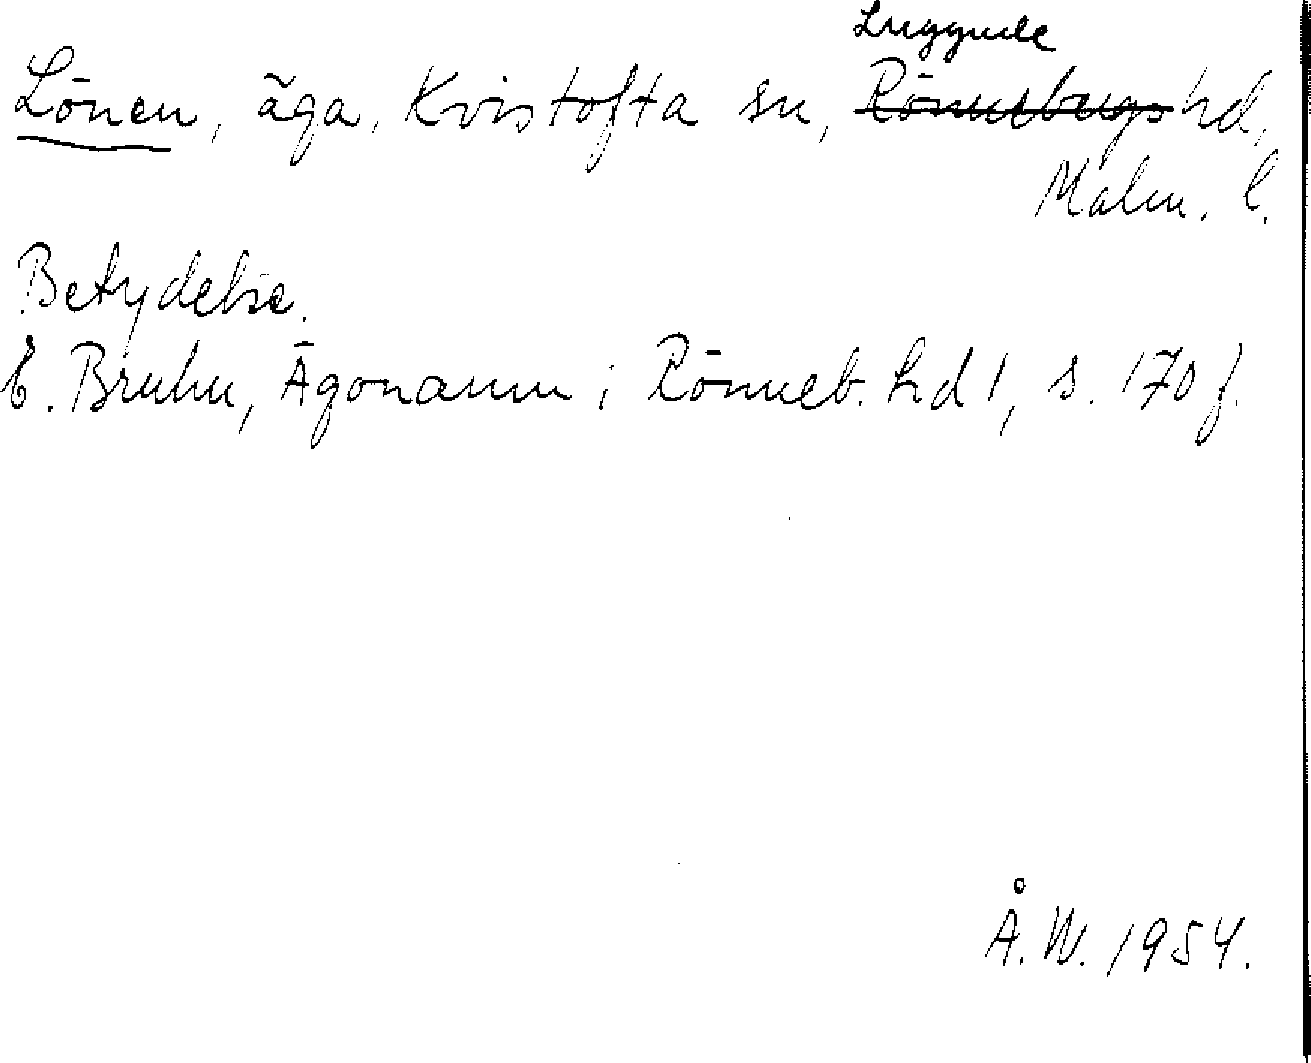 Luggude
Lönen, äga, Kvistofta sn, Rönnebergs hd,
Malm. l.
Betydelse.
E. Bruhn, Ägonamn i Rönneb. hd 1, s. 170 f.
Å. W. 1954.